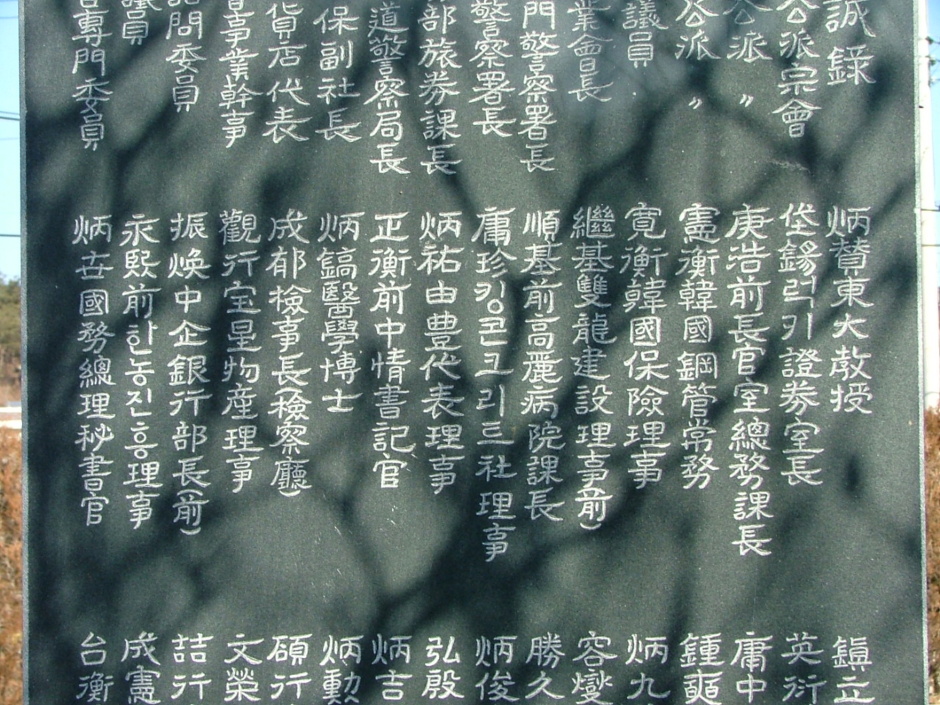 誠錄
公派宗會
公派〃
公派〃
議員
業會長
門警察署長
警察署長
部旅券課長
道警察局長
保副社長
貨店代表
事業幹事
問委員
議員
專門委員
炳贊東大敎授
垈錫럭키證券室長
庚浩前長官室總務課長
憲衡韓國鋼管常務
寬衡韓國保險理事
繼基雙龍建設理事(前)
順基前高麗病院課長
庸珍킹콘그리三社理事
炳祐由豊代表理事
正衡前中情書記官
炳鎬醫學博士
成郁檢事長(檢察廳)
觀行宝星物産理事
振煥中企銀行部長(前)
永熙前한농진흥理事
炳世國務總理秘書官
鎭立
英衍
庸中
鍾奭
炳九
容燮
勝久
炳俊
弘殷
炳吉
炳勳
碩行
文榮
喆行
成憲
台衡